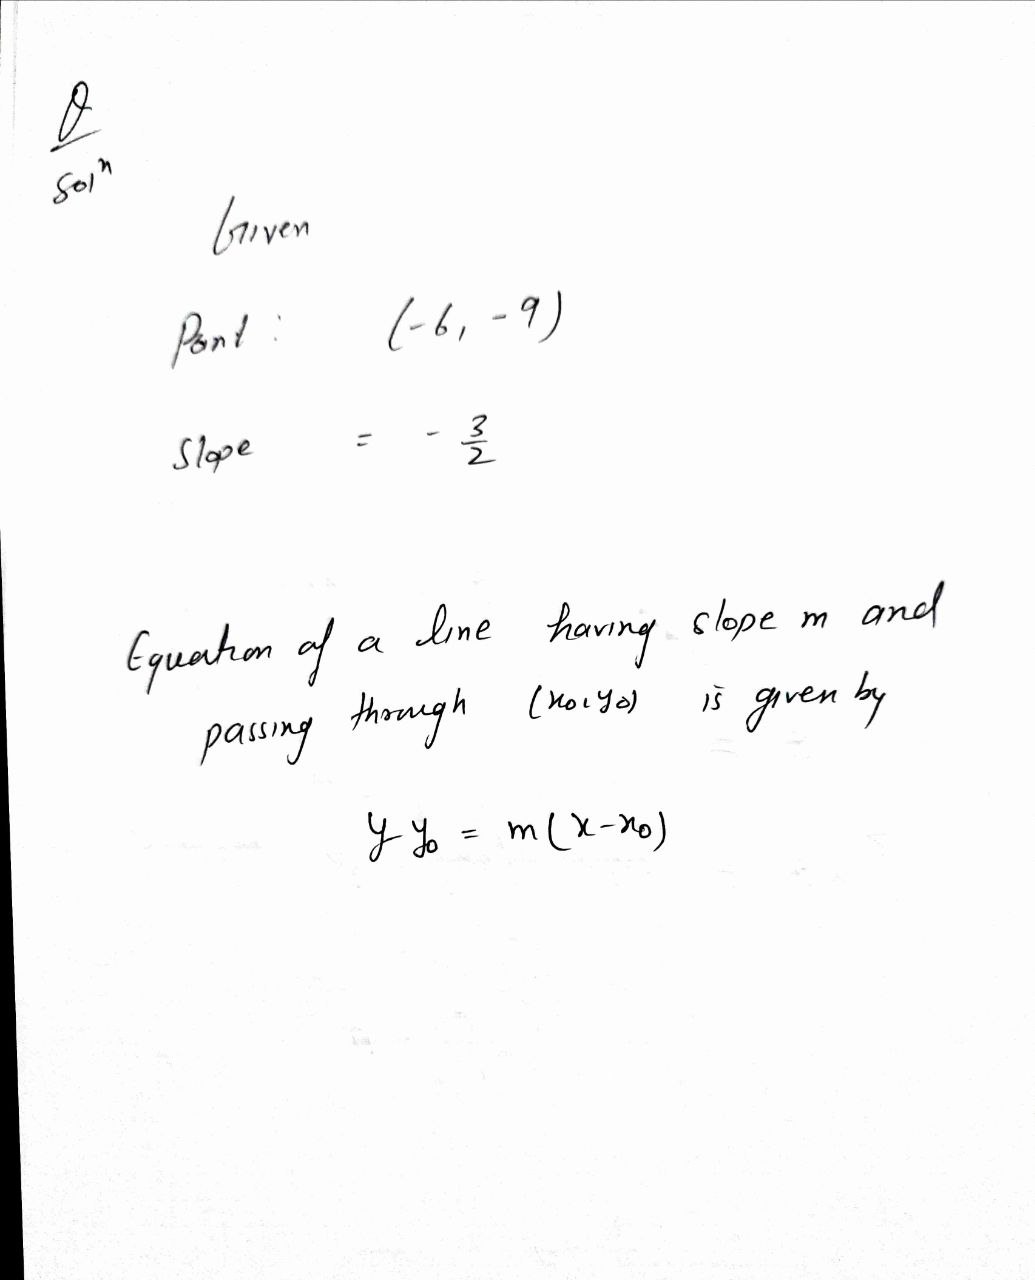 Q
Solⁿ
Given
Point : (-6, -9)
Slope = - 3/2
Equation of a line having slope m and
passing through (x₀, y₀) is given by
y y₀ = m(x-x₀)